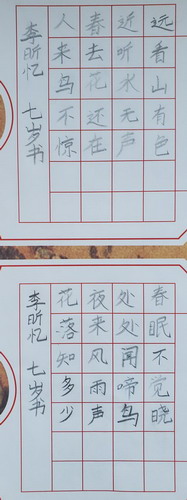 远看山有色
近听水无声
春去花还在
人来鸟不惊
李昕忆 七岁书
春眠不觉晓
处处闻啼鸟
夜来风雨声
花落知多少
李昕忆 七岁书